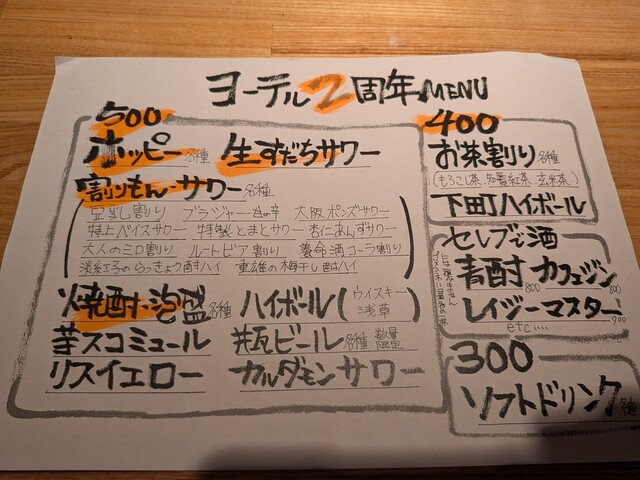 ヨーテル2周年MENU
500
ホッピー各種 生すだちサワー
割りもん・サワー各種
豆乳割り ブラジャー 大阪ポンズサワー
特上バイスサワー 特製とまとサワー 杏仁あんずサワー
大人のミロ割り ルートビア割り 養命酒コーラ割り
淡紅子のらっきょう酎ハイ 重雄の梅干し酎ハイ
焼酎・泡盛各種 ハイボール(ウイスキー 浅草)
芋スコミュール 瓶ビール各種 数量限定
リスイエロー カルダモンサワー
400
お茶割り各種
(もろこし茶、知覧紅茶、玄米茶)
下町ハイボール
セレブな酒
青酎800 カフェジン800
レイジーマスター900
etc....
300
ソフトドリンク各種